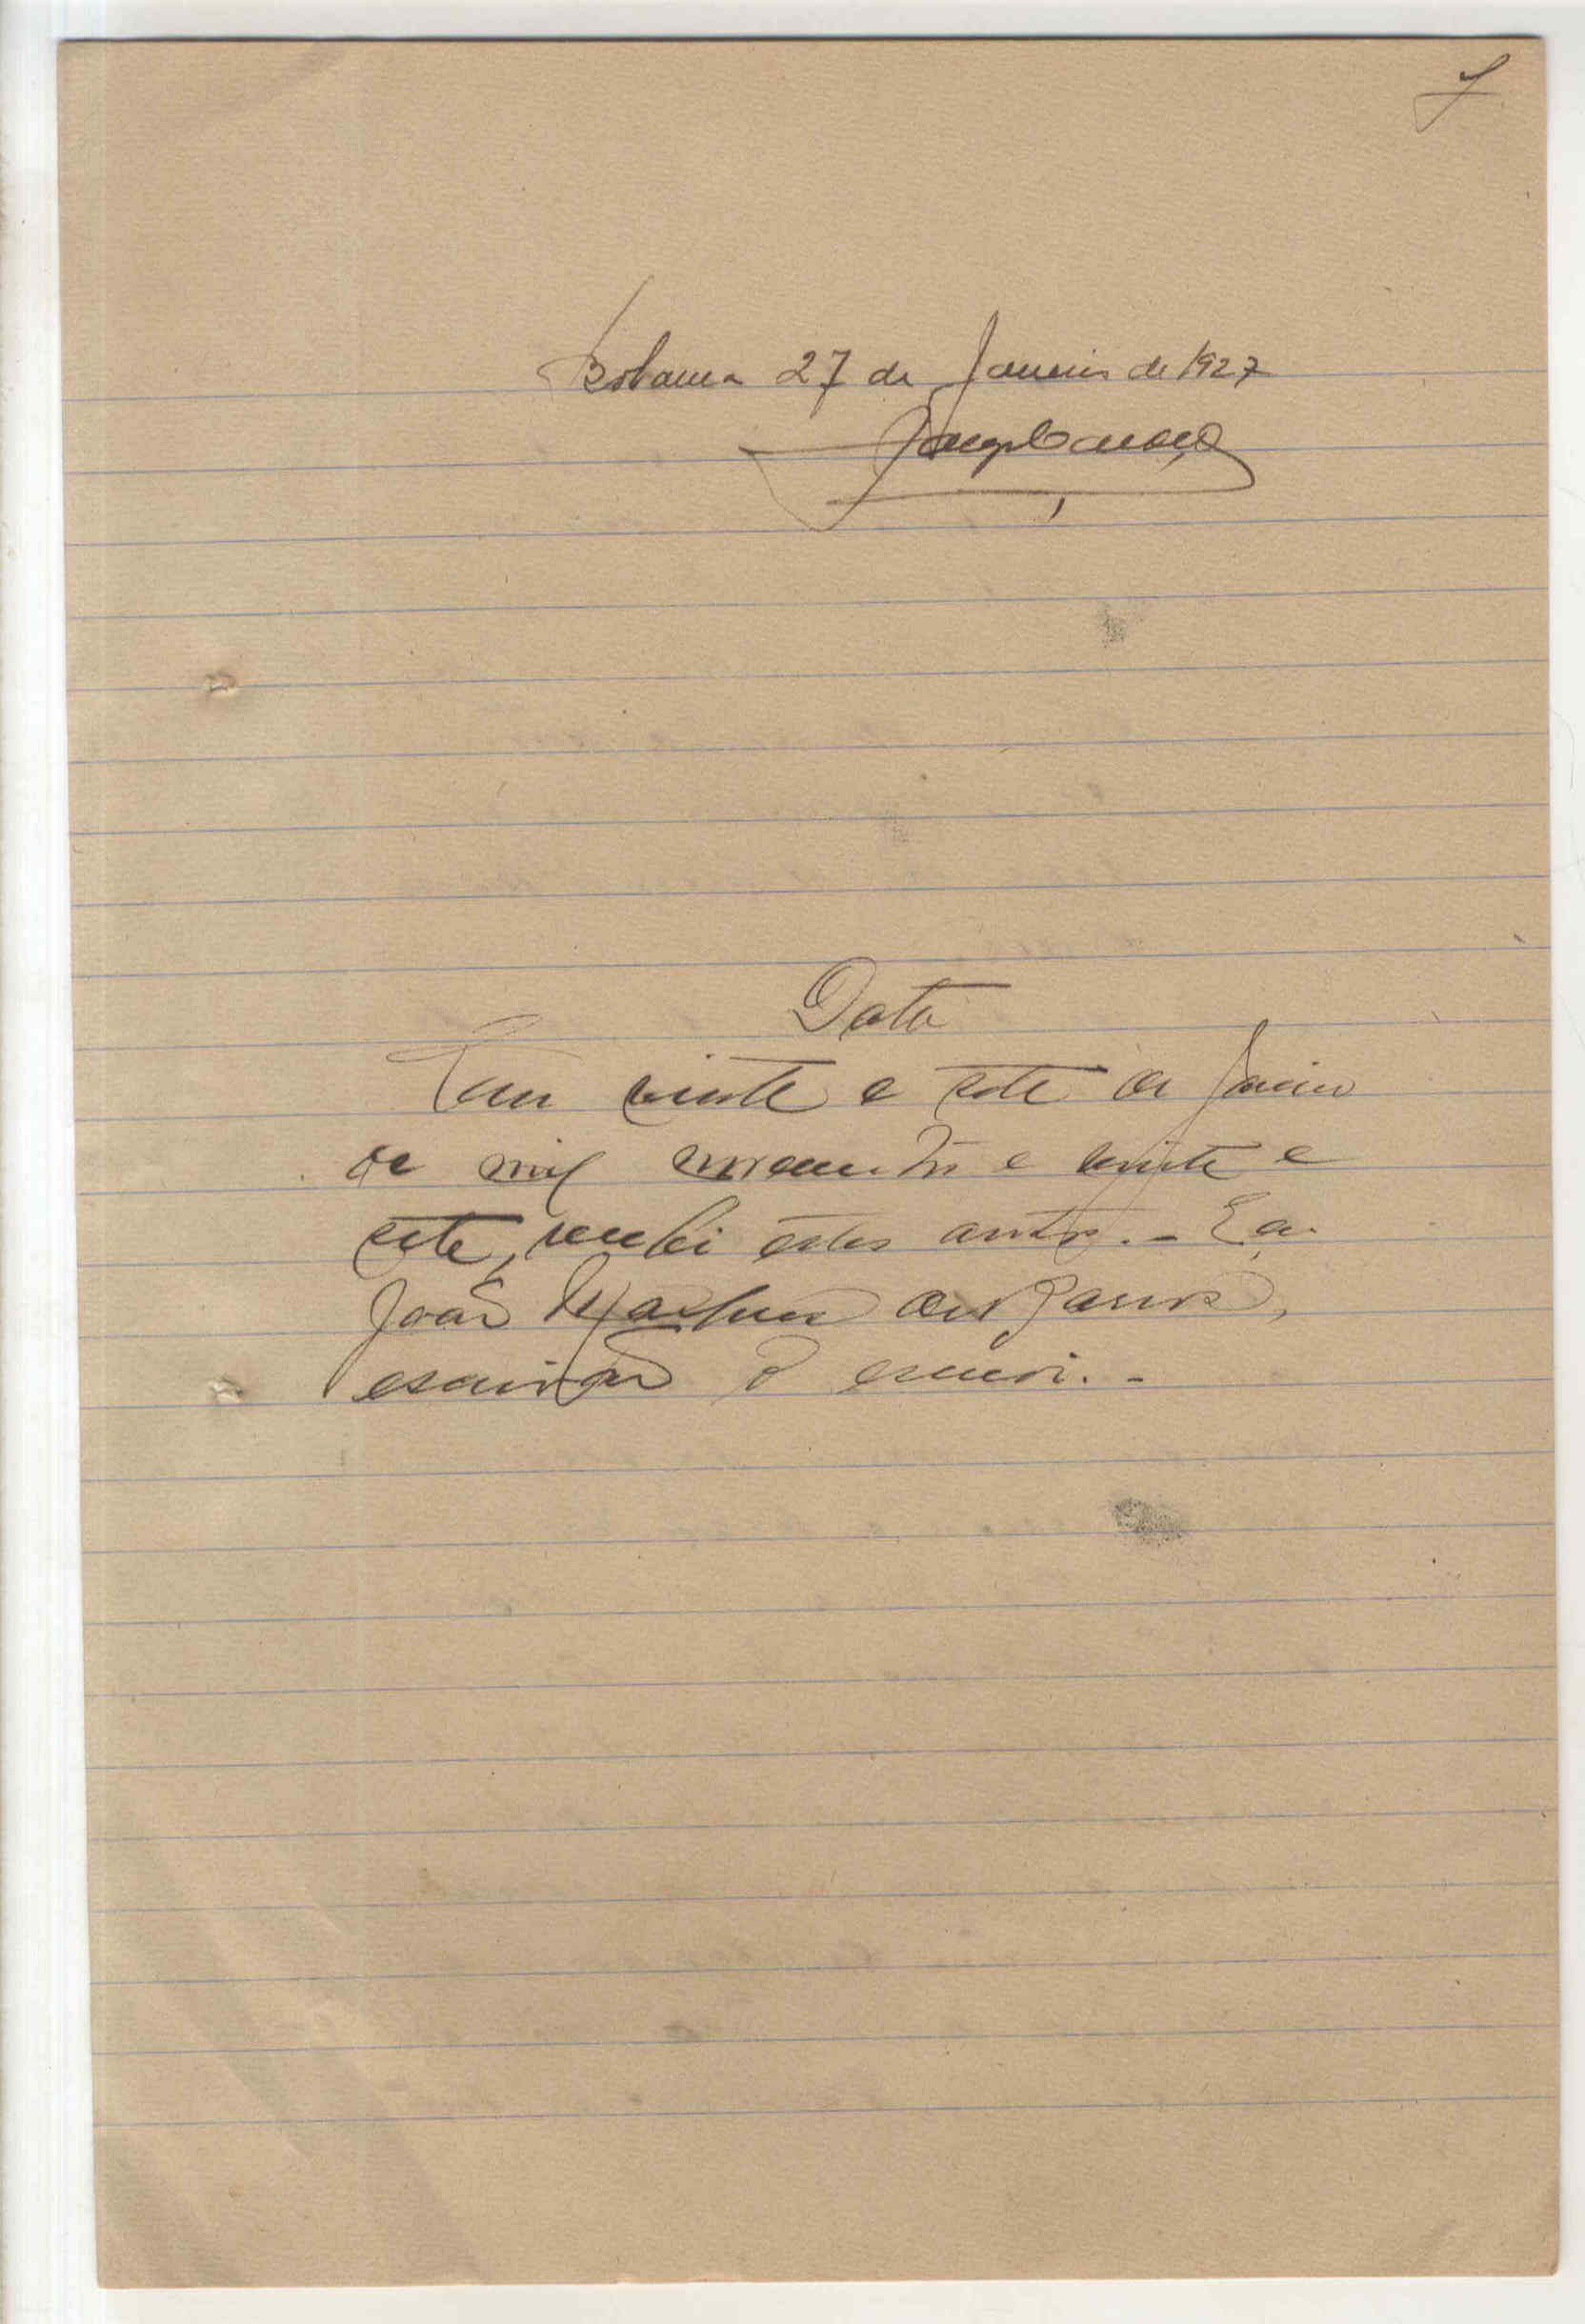 Bolama 27 de Janeiro de 1927
Data
Em vinte e sete de Janeiro
de mil novecentos e vinte e
sete, recebi estes autos. - Eu
João de Barros,
escrivão o escrevi. -